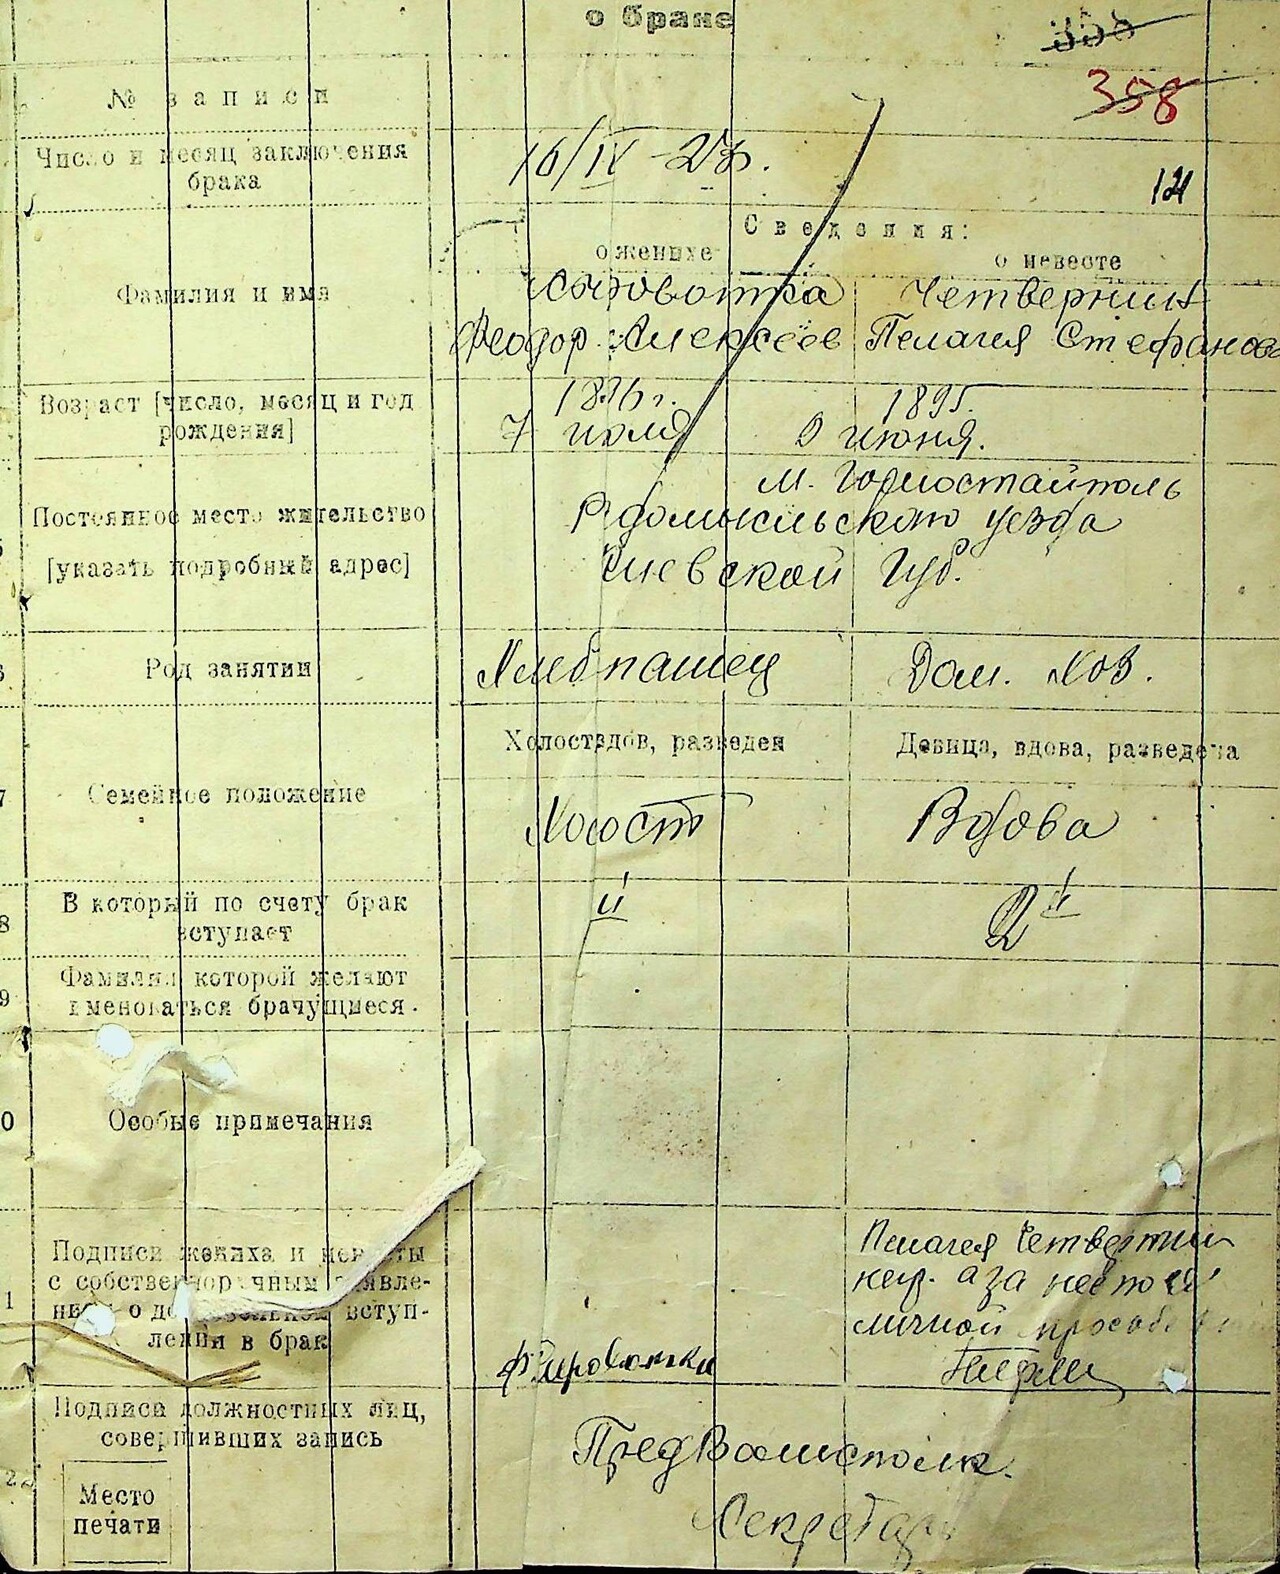 о браке
358
№ записи
Число и месяц заключения
брака
16/IV-23.
121
Сведения:
о женихе
о невесте
Фамилия и имя
Сыровотка
Четверник
Феодор Алексеев
Пелагея Стефанова
Возраст [число, месяц и год
рождения]
7 июля
1895.
9 июня.
м. Горностайполь
Постоянное место жительство
Радомысльского уезда
[указать подробный адрес]
Киевской Губ.
Род занятий
Хлебпашец
Дом. Хоз.
Холост, вдов, разведен
Девица, вдова, разведена
Семейное положение
Холост
Вдова
В который по счету брак
вступает
2й
Фамилия которой желают
именоваться брачущиеся.
Особые примечания
Подписи жениха и невесты
с собственноручным заявле-
нием о добровольном вступ-
лении в брак
Пелагея Четвертник
негр. а за нее по ея
личной просьбе
Ф Сировотка
Подписи должностных лиц,
совершивших запись
ПредВолисполк.
Секретарь
Место
печати